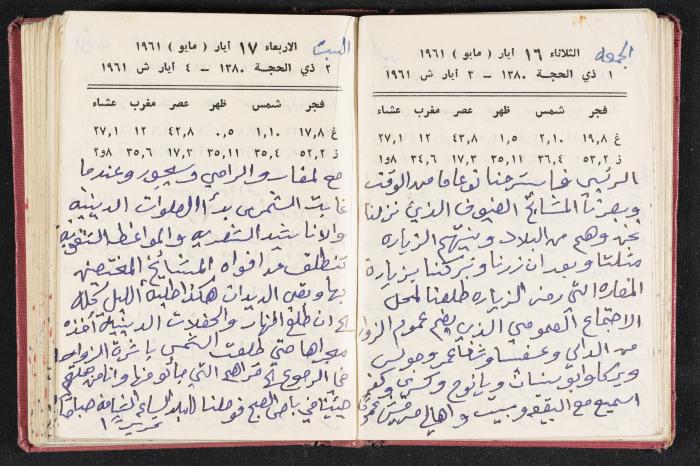 الجمعه
الثلاثاء ١٦ أيار ( مايو ) ١٩٦١
١ ذي الحجة ١٣٨٠ – ٣ أيار ش ١٩٦١
فجر شمس ظهر عصر مغرب عشاء
غ ١٩,٨ ٢,١٠ ١,٥ ٤٣,٨ ١٢ ٢٧,١
ز ٥٣,٢ ٣٦,٤ ٣٥,١١ ١٧,٣ ٣٤,٦ ١و٨
الرئيسي فاسترحنا نوعا ما من الوقت
وبصرنا المشايخ الضيوف الذين نزلنا
نحن وهم من البلاد وبنيتهم الزياره
مثلنا وبعد ان زرنا وتبركنا بزيارة
المغاره التي رمز الزياره طلعنا لمحل
الاجتماع العمومي الذي يضم عموم الزوار
من الدالي وعسفيا وشفاعمر وجولس
ويركا وابو سنان ويانوح وكسرى وكفر
اسميع مع البقيعه وبيت واهالي حرفيش
السبت
الاربعاء ١٧ أيار ( مايو ) ١٩٦١
٢ ذي الحجة ١٣٨٠ – ٤ أيار ش ١٩٦١
فجر شمس ظهر عصر مغرب عشاء
غ ١٧,٨ ١,١٠ ٠,٥ ٤٢,٨ ١٢ ٢٧,١
ز ٥٢,٢ ٣٥,٤ ٣٥,١١ ١٧,٣ ٣٥,٦ ٢و٨
مع المغار والرامي وسجور وعندما
غابت الشمس بدأ الصلوات الدينيه
والاناشيد الشعريه والمواعظ الشعريه
تنطلق من افواه المشايخ المختصين
بها وبقي الديدان هكذا طيلة الليل كله
الى ان طلع النهار والحفلات الدينية أخذه
مجراها حتى طلعت الشمس باشرة الزوار
في الرجوع الى قراهم التي جاؤ منها وانا من جملتهم
جيت في باص الصبح فوصلنا البلد الساعه الثامنة صباحا